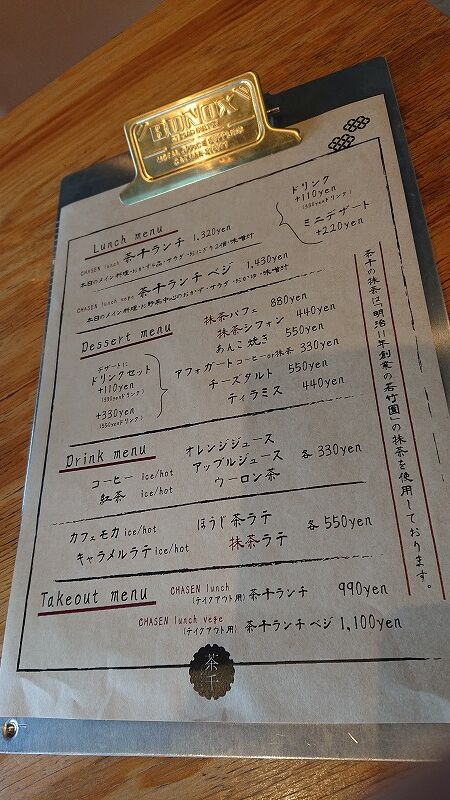 BONOX
Lunch menu
CHASEN lunch 茶千ランチ 1,320yen
本日のメイン料理・おかず5品・サラダ・おにぎり2個・味噌汁
CHASEN lunch vege 茶千ランチ ベジ 1,430yen
本日のメイン料理・お野菜中心のおかず・サラダ・おかゆ・味噌汁
ドリンク
+110yen
(330yenドリンク)
ミニデザート
+220yen
Dessert menu
デザートに
ドリンクセット
+110yen
(330yenドリンク)
+330yen
(550yenドリンク)
抹茶パフェ 880yen
抹茶シフォン 440yen
あんこ焼き 550yen
アフォガート コーヒーor抹茶 330yen
チーズタルト 550yen
ティラミス 440yen
Drink menu
コーヒー ice/hot
紅茶 ice/hot
オレンジジュース
アップルジュース
ウーロン茶
各 330yen
カフェモカ ice/hot
キャラメルラテ ice/hot
ほうじ茶ラテ
抹茶ラテ
各 550yen
Takeout menu
CHASEN lunch
(テイクアウト用) 茶千ランチ 990yen
CHASEN lunch vege
(テイクアウト用) 茶千ランチ ベジ 1,100yen
茶千の抹茶は「明治11年創業の若竹園」の抹茶を使用しております。
茶千